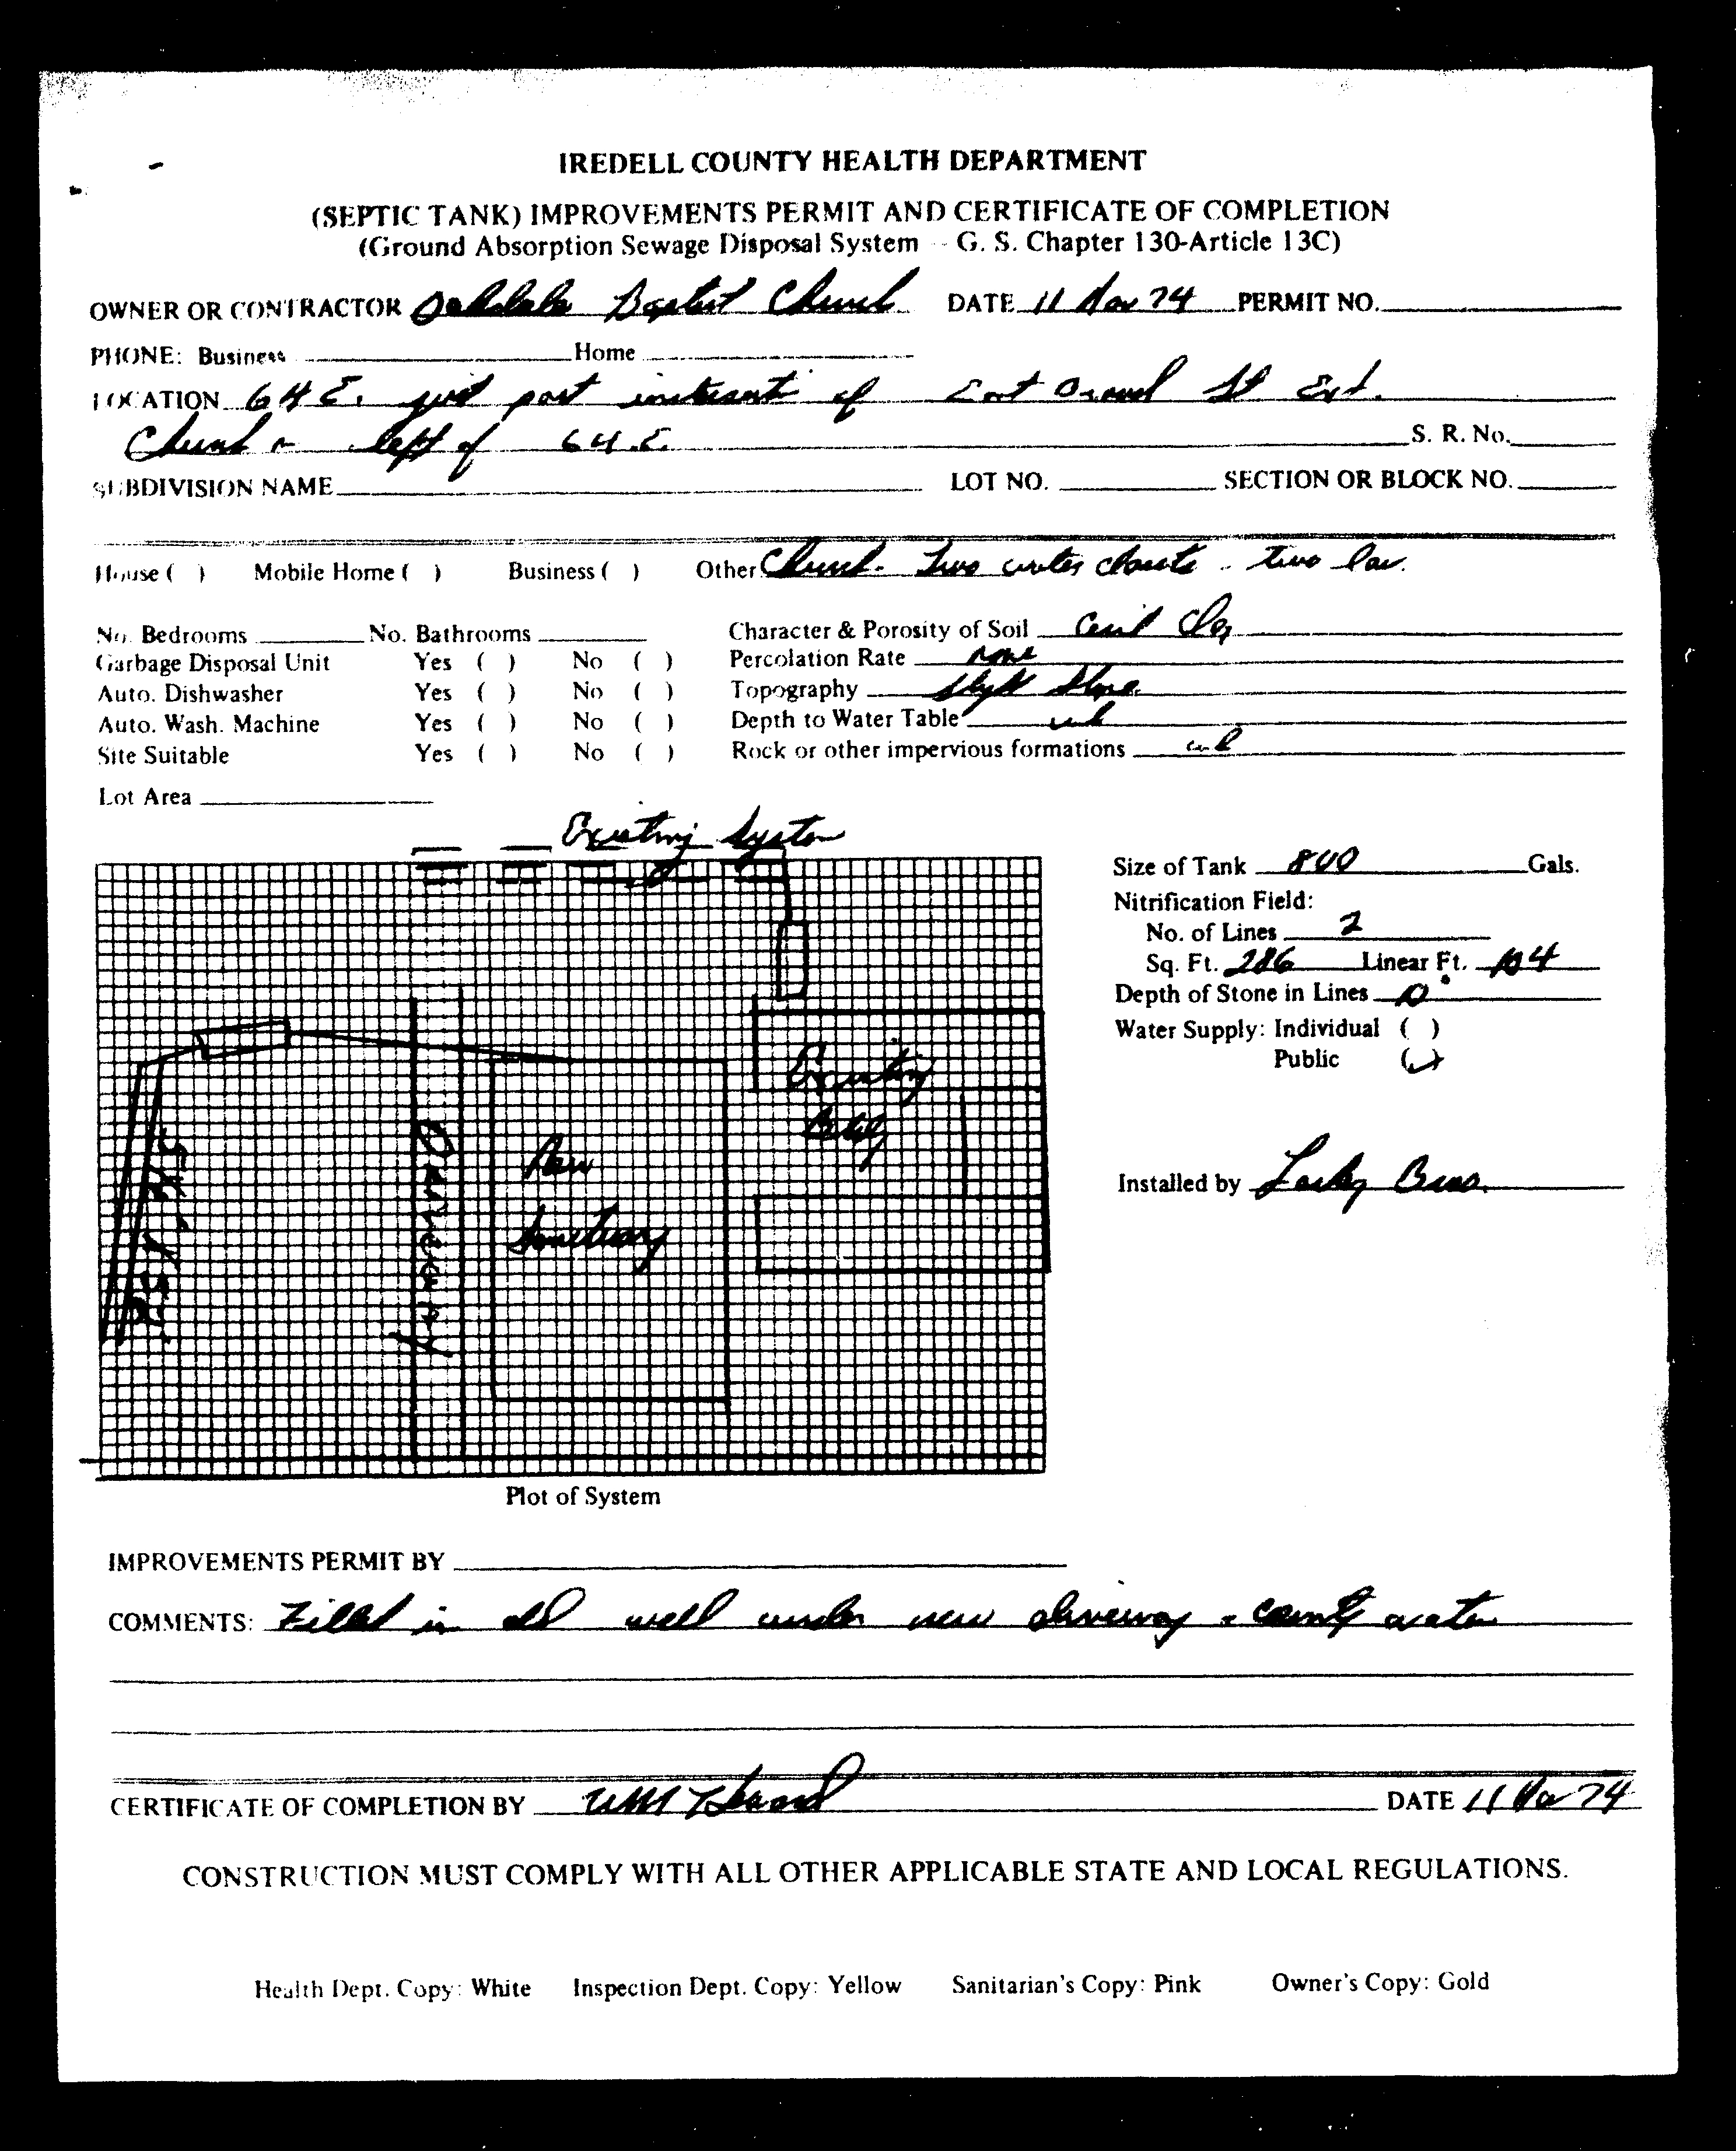 IREDELL COUNTY HEALTH DEPARTMENT
(SEPTIC TANK) IMPROVEMENTS PERMIT AND CERTIFICATE OF COMPLETION
(Ground Absorption Sewage Disposal System - G. S. Chapter 130-Article 13C)
OWNER OR CONTRACTOR Oakdale Baptist Church DATE 11 Nov 74 PERMIT NO.
PHONE: Business Home
LOCATION 64 E. just past intersect of East Broad St Ext.
Church on left of 64 E. S. R. No.
SUBDIVISION NAME LOT NO. SECTION OR BLOCK NO.
House ( ) Mobile Home ( ) Business ( ) Other Church - Two water closets - two lav.
No. Bedrooms No. Bathrooms Character & Porosity of Soil Cecil Clay
Garbage Disposal Unit Yes ( ) No ( ) Percolation Rate none
Auto. Dishwasher Yes ( ) No ( ) Topography Slight Slope
Auto. Wash. Machine Yes ( ) No ( ) Depth to Water Table
Site Suitable Yes ( ) No ( ) Rock or other impervious formations
Lot Area
Existing System
Size of Tank 800 Gals.
Nitrification Field:
No. of Lines 2
Sq. Ft. 286 Linear Ft. 104
Depth of Stone in Lines 10"
Water Supply: Individual ( )
Public (✓)
Existing
Bldg
New
Sanctuary
Driveway
Installed by Lackey Bros.
Plot of System
IMPROVEMENTS PERMIT BY
COMMENTS: Filled in old well under new driveway - county water
CERTIFICATE OF COMPLETION BY DATE 11 Nov 74
CONSTRUCTION MUST COMPLY WITH ALL OTHER APPLICABLE STATE AND LOCAL REGULATIONS.
Health Dept. Copy: White Inspection Dept. Copy: Yellow Sanitarian's Copy: Pink Owner's Copy: Gold